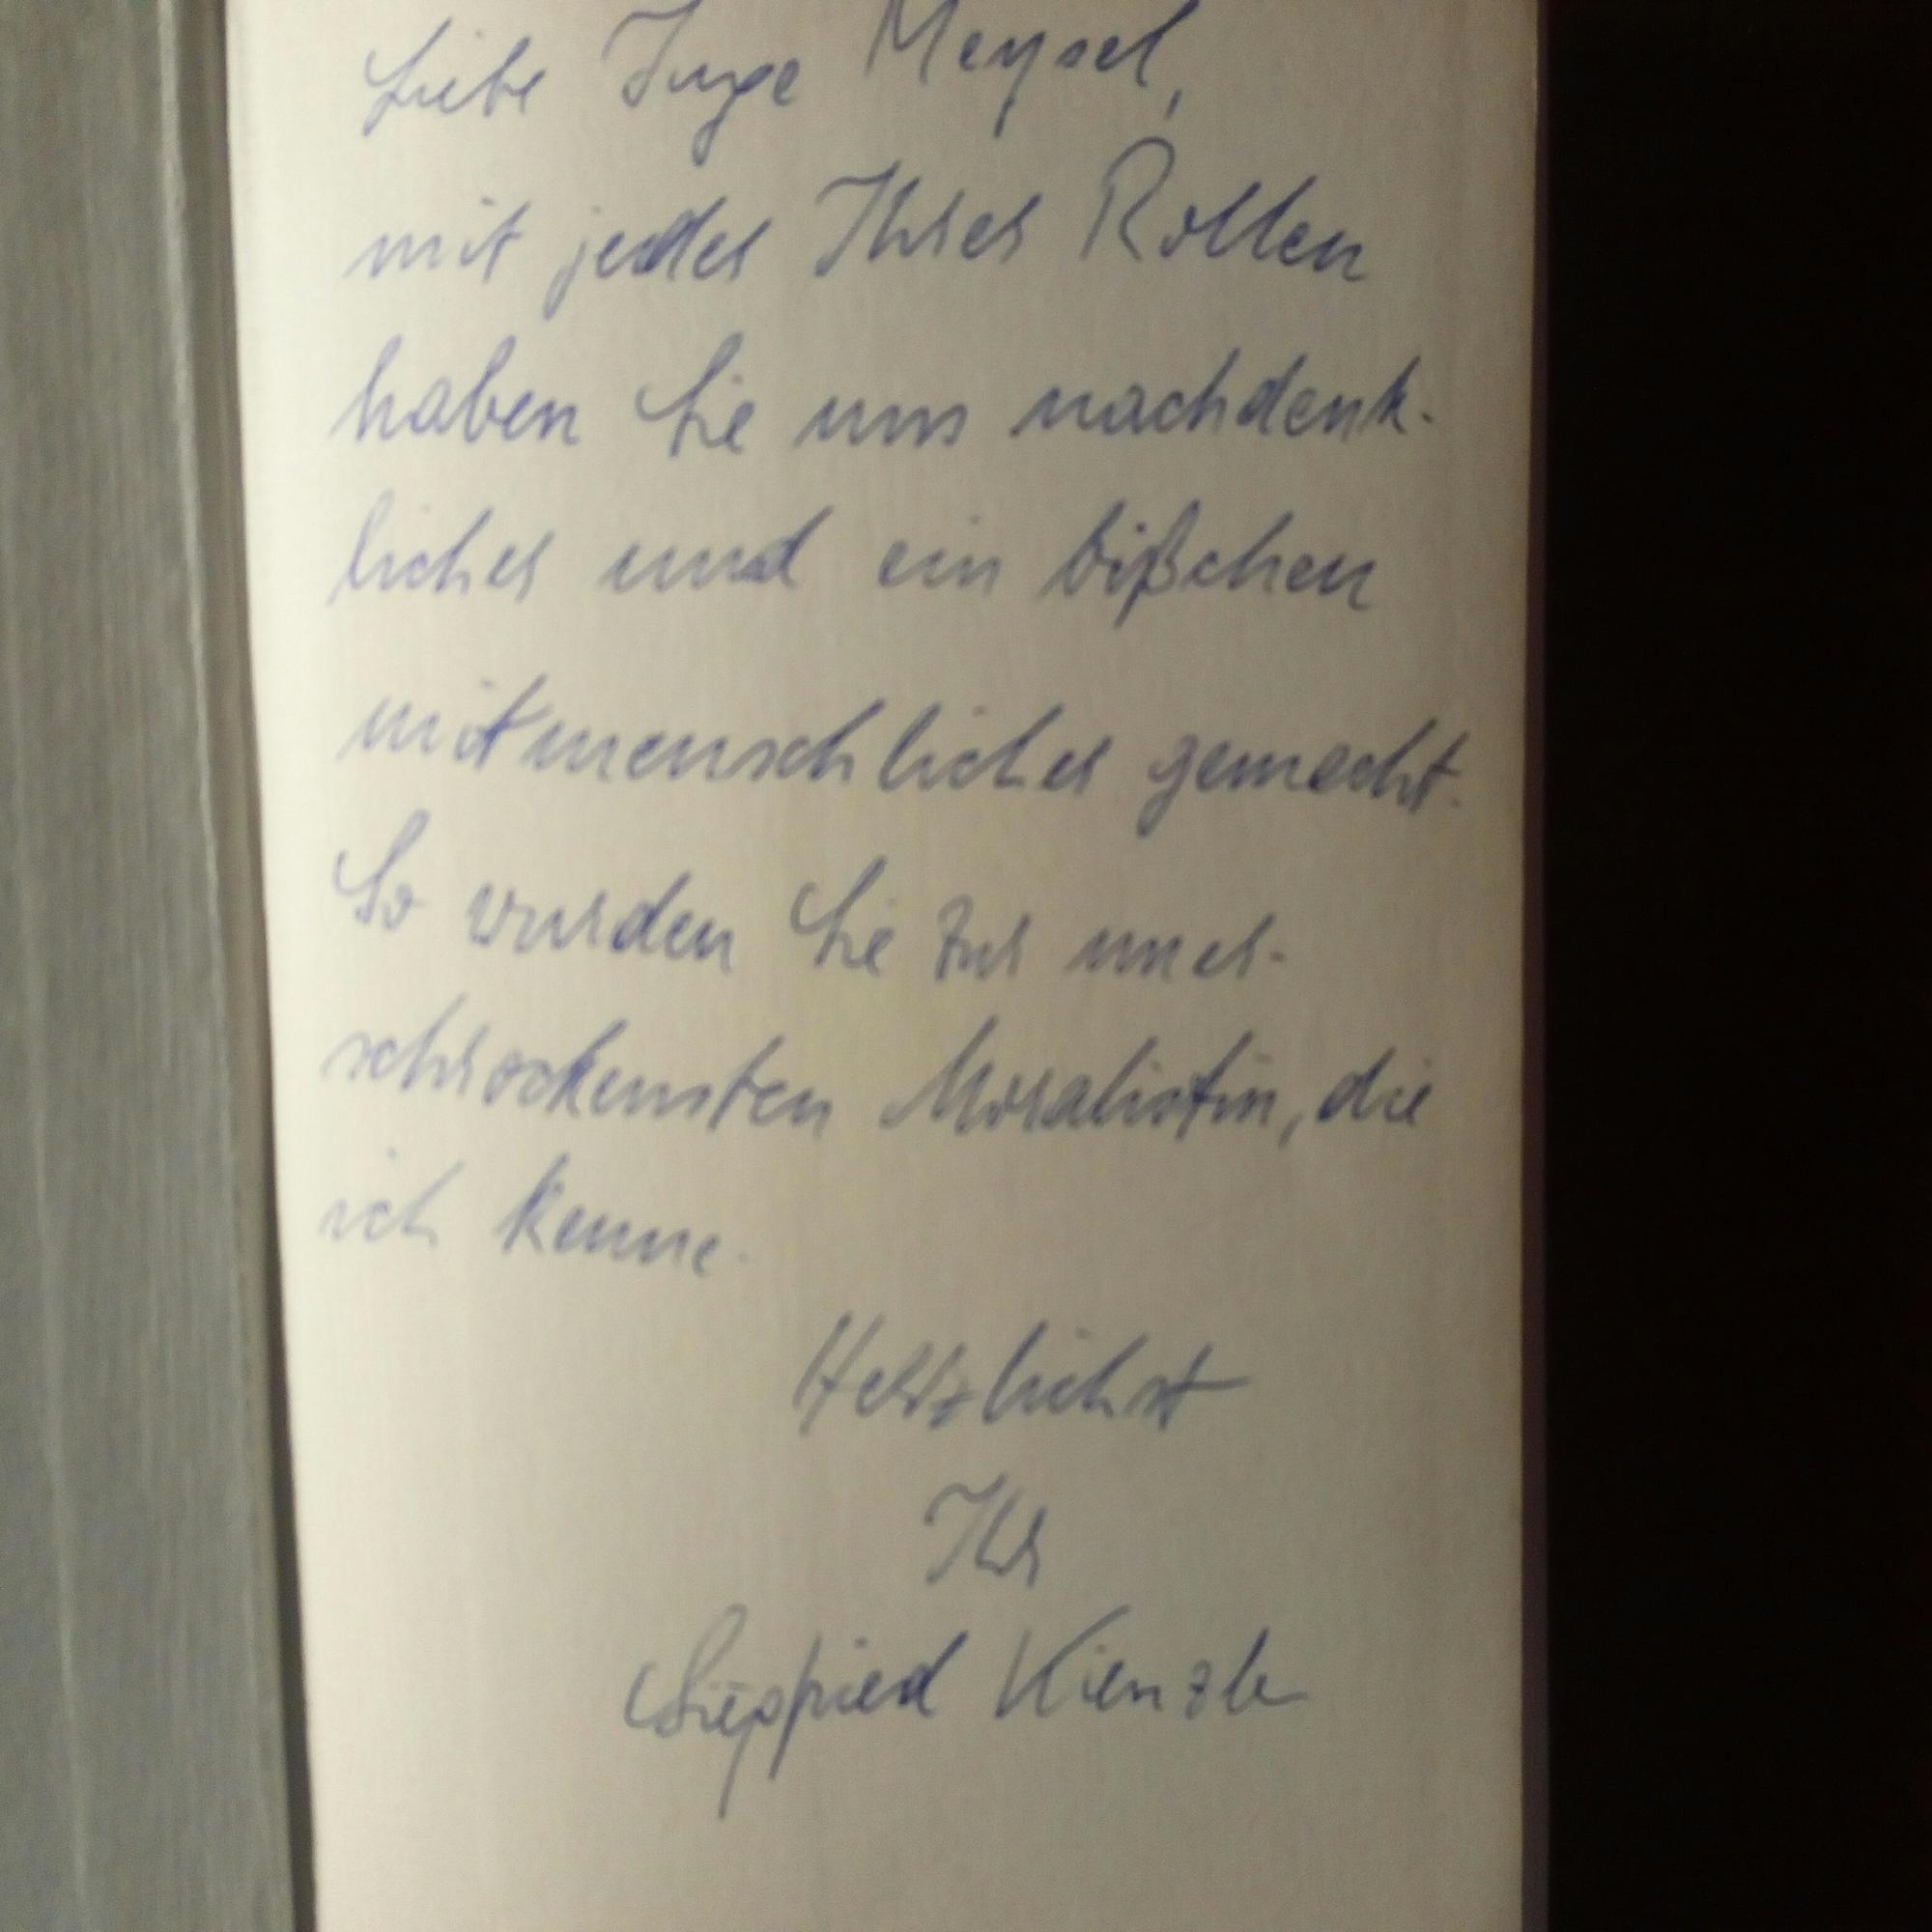 Liebe Inge Meysel,
mit jeder Ihrer Rollen
haben Sie uns nachdenk-
licher und ein bißchen
mitmenschlicher gemacht.
So wurden Sie zur uner-
schrockensten Moralistin, die
ich kenne.
Herzlichst
Ihr
Siegfried Kienzle